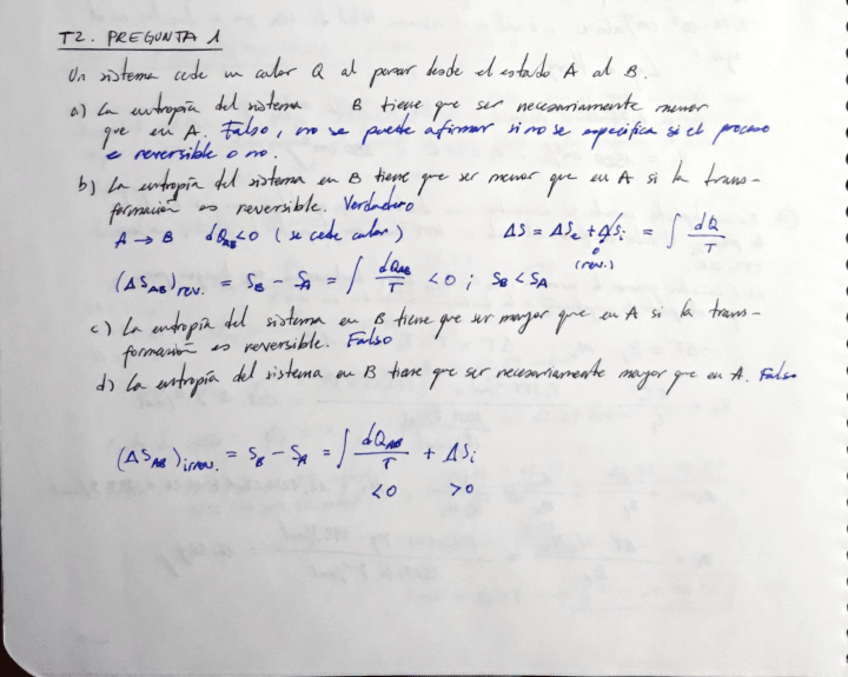 T2. PREGUNTA 1
Un sistema cede un calor Q al pasar desde el estado A al B.
a) La entropía del sistema B tiene que ser necesariamente menor
que en A. Falso, no se puede afirmar si no se especifica si el proceso
e reversible o no.
b) La entropía del sistema en B tiene que ser menor que en A si la trans-
formación es reversible. Verdadero
A → B dQ_AB < 0 (se cede calor) ΔS = ΔS_e + ΔS_i = ∫ dQ/T
0
(rev.)
(ΔS_AB)_rev. = S_B - S_A = ∫ dQ_AB/T < 0 ; S_B < S_A
c) La entropía del sistema en B tiene que ser mayor que en A si la trans-
formación es reversible. Falso
d) La entropía del sistema en B tiene que ser necesariamente mayor que en A. Falso
(ΔS_AB)_irrev. = S_B - S_A = ∫ dQ_AB/T + ΔS_i
<0 >0